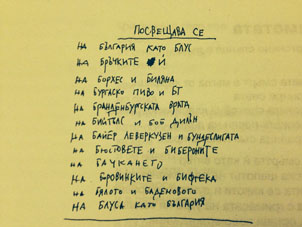 ПОСВЕЩАВА СЕ
НА БЪЛГАРИЯ КАТО БЛУС
НА БРЪЧКИТЕ Ѝ
НА БОРХЕС И БИЛЯНА
НА БУРГАСКО ПИВО И БТ
НА БРАНДЕНБУРГСКАТА ВРАТА
НА БИЙТЪЛС И БОБ ДИЛЪН
НА БАЙЕР ЛЕВЕРКУЗЕН И БУНДЕСЛИГАТА
НА БЮСТОВЕТЕ И БИБЕРОНИТЕ
НА БАЧКАНЕТО
НА БОРОВИНКИТЕ И БИФТЕКА
НА БЯЛОТО И БАДЕМОВОТО
НА БЛУСА КАТО БЪЛГАРИЯ